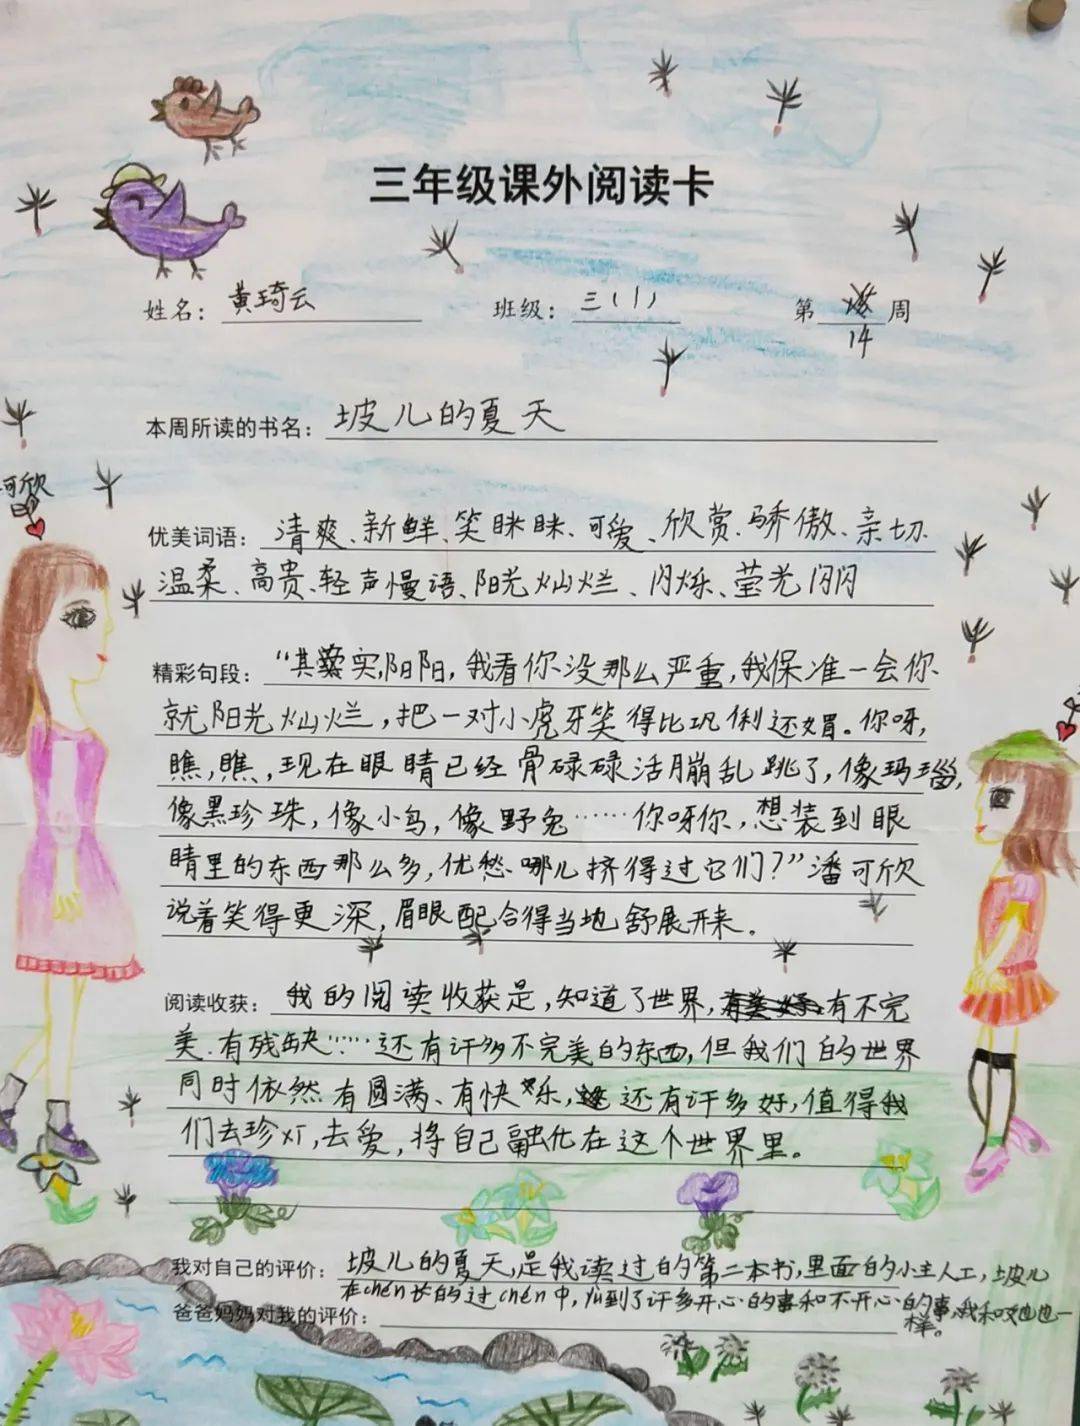 三年级课外阅读卡
姓名：黄琦云 班级：三（1） 第 周
14
本周所读的书名：坡儿的夏天
可欣
优美词语：清爽、新鲜、笑眯眯、可爱、欣赏、骄傲、亲切、
温柔、高贵、轻声慢语、阳光灿烂、闪烁、莹光闪闪
精彩句段：“其实，阳阳，我看你没那么严重，我保准一会你
就阳光灿烂，把一对小虎牙笑得比巩俐还媚。你呀，
瞧，瞧，现在眼睛已经骨碌碌活蹦乱跳了，像玛瑙，
像黑珍珠，像小鸟，像野兔……你呀你，想装到眼
睛里的东西那么多，优愁哪儿挤得过它们？”潘可欣
说着笑得更深，眉眼配合得当地舒展开来。
阅读收获：我的阅读收获是，知道了世界，有不完
美、有残缺……还有许多不完美的东西，但我们的世界
同时依然有圆满、有快乐，还有许多好，值得我
们去珍灯，去爱，将自己融化在这个世界里。
我对自己的评价：坡儿的夏天，是我读过的第二本书，里面的小主人工，坡儿
在chén长的过chén中，从到了许多开心的事和不开心的事，我和她也一
样。
爸爸妈妈对我的评价：